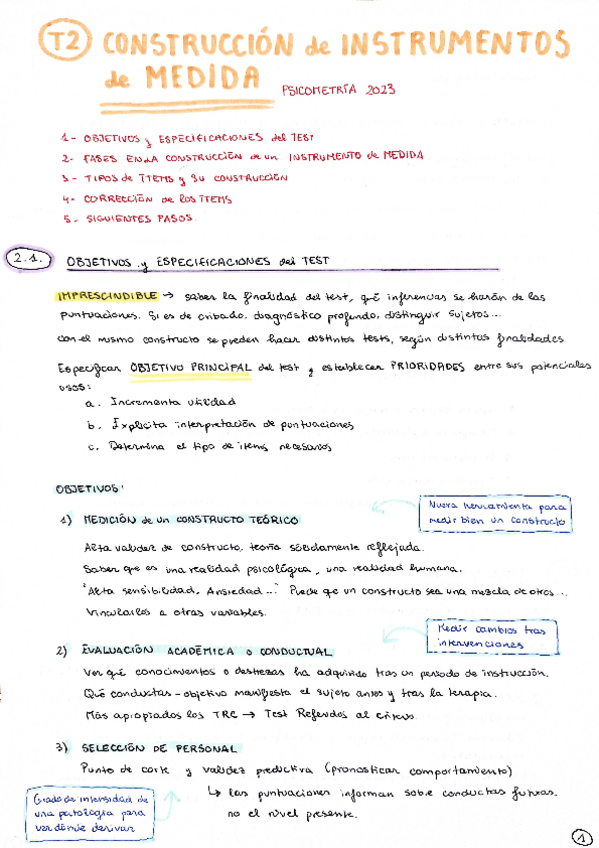 T2 CONSTRUCCIÓN de INSTRUMENTOS
de MEDIDA
PSICOMETRÍA 2023
1- OBJETIVOS y ESPECIFICACIONES del TEST
2- FASES EN LA CONSTRUCCIÓN de un INSTRUMENTO de MEDIDA
3- TIPOS de ÍTEMS y SU CONSTRUCCIÓN
4- CORRECCIÓN de los ÍTEMS
5- SIGUIENTES PASOS.
2.1. OBJETIVOS y ESPECIFICACIONES del TEST
IMPRESCINDIBLE → saber la finalidad del test, qué inferencias se harán de las
puntuaciones. Si es de cribado, diagnóstico profundo, distinguir sujetos...
con el mismo constructo se pueden hacer distintos tests, según distintas finalidades
Especificar OBJETIVO PRINCIPAL del test y establecer PRIORIDADES entre sus potenciales
usos:
a. Incrementa utilidad
b. Explicita interpretación de puntuaciones
c. Determina el tipo de ítems necesarios
OBJETIVOS:
Nueva herramienta para
medir bien un constructo
1) MEDICIÓN de un CONSTRUCTO TEÓRICO
Alta validez de constructo, teoría sólidamente reflejada.
Saber que es una realidad psicológica, una realidad humana.
"Alta sensibilidad, Ansiedad..." Puede que un constructo sea una mezcla de otros...
Vincularlos a otras variables.
Medir cambios tras
intervenciones
2) EVALUACIÓN ACADÉMICA o CONDUCTUAL
Ver qué conocimientos o destrezas ha adquirido tras un periodo de instrucción.
Qué conductas-objetivo manifiesta el sujeto antes y tras la terapia.
Más apropiados los TRC → Test Referidos al Criterio.
3) SELECCIÓN DE PERSONAL
Punto de corte y validez predictiva (pronosticar comportamiento)
↳ las puntuaciones informan sobre conductas futuras,
no el nivel presente.
Grado de intensidad de
una patología para
ver dónde derivar
1